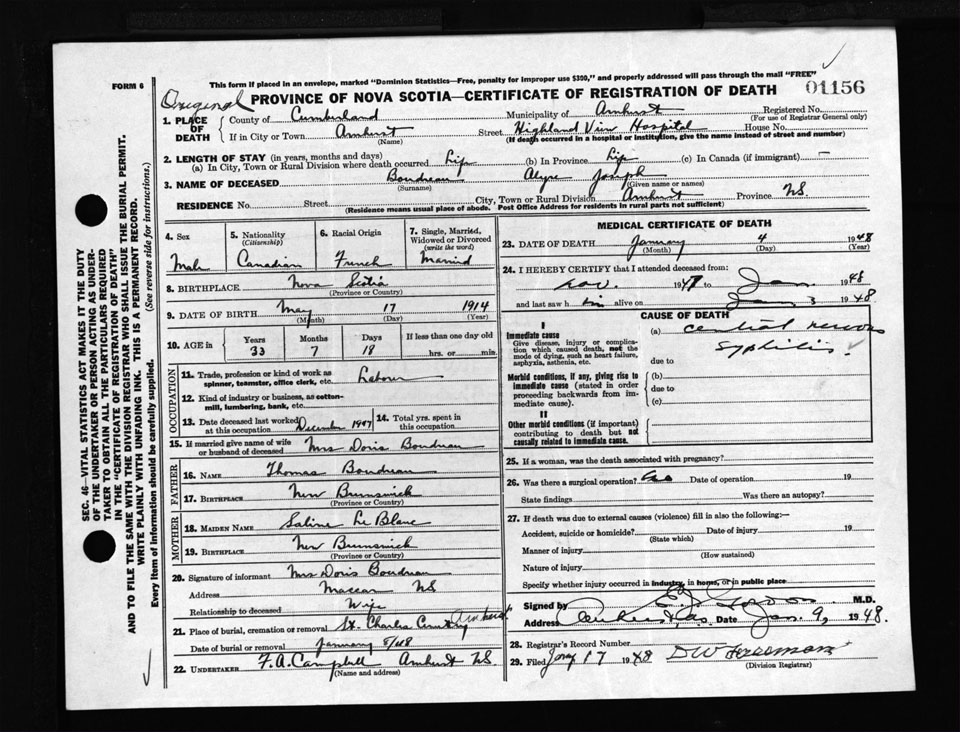 FORM 6
This form if placed in an envelope, marked "Dominion Statistics—Free, penalty for improper use $300," and properly addressed will pass through the mail "FREE"
Original
PROVINCE OF NOVA SCOTIA—CERTIFICATE OF REGISTRATION OF DEATH
01156
1. PLACE OF DEATH
County of Cumberland
Municipality of Amherst
Registered No.
(For use of Registrar General only)
If in City or Town Amherst
(Name)
Street Highland View Hospital House No.
(If death occurred in a hospital or institution, give the name instead of street and number)
2. LENGTH OF STAY (in years, months and days)
(a) In City, Town or Rural Division where death occurred Life (b) In Province Life (c) In Canada (if immigrant) —
3. NAME OF DECEASED Boudreau Alyre Joseph
(Surname) (Given name or names)
RESIDENCE No. Street City, Town or Rural Division Amherst Province N.S.
(Residence means usual place of abode. Post Office Address for residents in rural parts not sufficient)
4. Sex
Male
5. Nationality
(Citizenship)
Canadian
6. Racial Origin
French
7. Single, Married, Widowed or Divorced
(write the word)
Married
8. BIRTHPLACE Nova Scotia
(Province or Country)
9. DATE OF BIRTH May 17 1914
(Month) (Day) (Year)
10. AGE in
Years Months Days If less than one day old
33 7 18 hrs. or min.
OCCUPATION
11. Trade, profession or kind of work as spinner, teamster, office clerk, etc. Labour
12. Kind of industry or business, as cotton-mill, lumbering, bank, etc.
13. Date deceased last worked at this occupation December 1947
14. Total yrs. spent in this occupation
15. If married give name of wife or husband of deceased Mrs Doris Boudreau
FATHER
16. NAME Thomas Boudreau
17. BIRTHPLACE New Brunswick
(Province or Country)
MOTHER
18. MAIDEN NAME Saline Le Blanc
19. BIRTHPLACE New Brunswick
(Province or Country)
20. Signature of informant Mrs Doris Boudreau
Address Maccan NS
Relationship to deceased Wife
21. Place of burial, cremation or removal St. Charles Cemetery Amherst
Date of burial or removal January 5/48
22. UNDERTAKER F.A. Campbell Amherst N.S.
(Name and address)
MEDICAL CERTIFICATE OF DEATH
23. DATE OF DEATH January 4 1948
(Month) (Day) (Year)
24. I HEREBY CERTIFY that I attended deceased from:
Nov. 1947 to Jan. 1948
and last saw h im alive on Jan 3 1948
CAUSE OF DEATH
I
Immediate cause
Give disease, injury or complication which caused death, not the mode of dying, such as heart failure, asphyxia, asthenia, etc.
(a) central nervous
syphilis
due to
Morbid conditions, if any, giving rise to immediate cause (stated in order proceeding backwards from immediate cause).
(b)
due to
(c)
II
Other morbid conditions (if important) contributing to death but not causally related to immediate cause.
25. If a woman, was the death associated with pregnancy?
26. Was there a surgical operation? Date of operation 19
State findings Was there an autopsy?
27. If death was due to external causes (violence) fill in also the following:—
Accident, suicide or homicide? Date of injury 19
(State which)
Manner of injury
(How sustained)
Nature of injury
Specify whether injury occurred in industry, in home, or in public place
Signed by M.D.
Address Amherst, N.S. Date Jan. 9, 1948.
28. Registrar's Record Number
29. Filed Jany 17 1948
(Division Registrar)
SEC. 46—VITAL STATISTICS ACT MAKES IT THE DUTY
OF THE UNDERTAKER OR PERSON ACTING AS UNDER-
TAKER TO OBTAIN ALL THE PARTICULARS REQUIRED
IN THE "CERTIFICATE OF REGISTRATION OF DEATH"
AND TO FILE THE SAME WITH THE DIVISION REGISTRAR WHO SHALL ISSUE THE BURIAL PERMIT.
WRITE PLAINLY WITH UNFADING INK. THIS IS A PERMANENT RECORD.
Every item of Information should be carefully supplied. (See reverse side for instructions.)